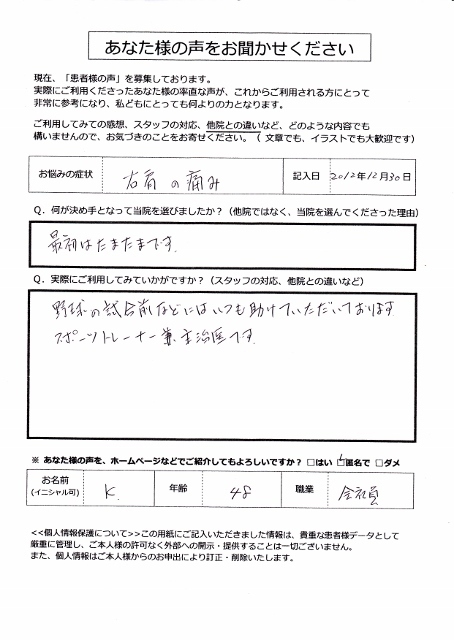 あなた様の声をお聞かせください
現在、「患者様の声」を募集しております。
実際にご利用くださったあなた様の率直な声が、これからご利用される方にとって
非常に参考になり、私どもにとっても何よりの力となります。
ご利用してみての感想、スタッフの対応、他院との違いなど、どのような内容でも
構いませんので、お気づきのことをお寄せください。（ 文章でも、イラストでも大歓迎です）
お悩みの症状 右肩の痛み 記入日 2012年12月30日
Ｑ．何が決め手となって当院を選びましたか？（他院ではなく、当院を選んでくださった理由）
最初はたまたまです。
Ｑ．実際にご利用してみていかがですか？（スタッフの対応、他院との違いなど）
野球の試合前などにはいつも助けていただいております。
スポーツトレーナー兼主治医です。
※ あなた様の声を、ホームページなどでご紹介してもよろしいですか？ □はい ☑匿名で □ダメ
お名前 K. 年齢 48 職業 会社員
(イニシャル可)
<<個人情報保護について>>この用紙にご記入いただきました情報は、貴重な患者様データとして
厳重に管理し、ご本人様の許可なく外部への開示・提供することは一切ございません。
また、個人情報はご本人様からのお申出により訂正・削除いたします。